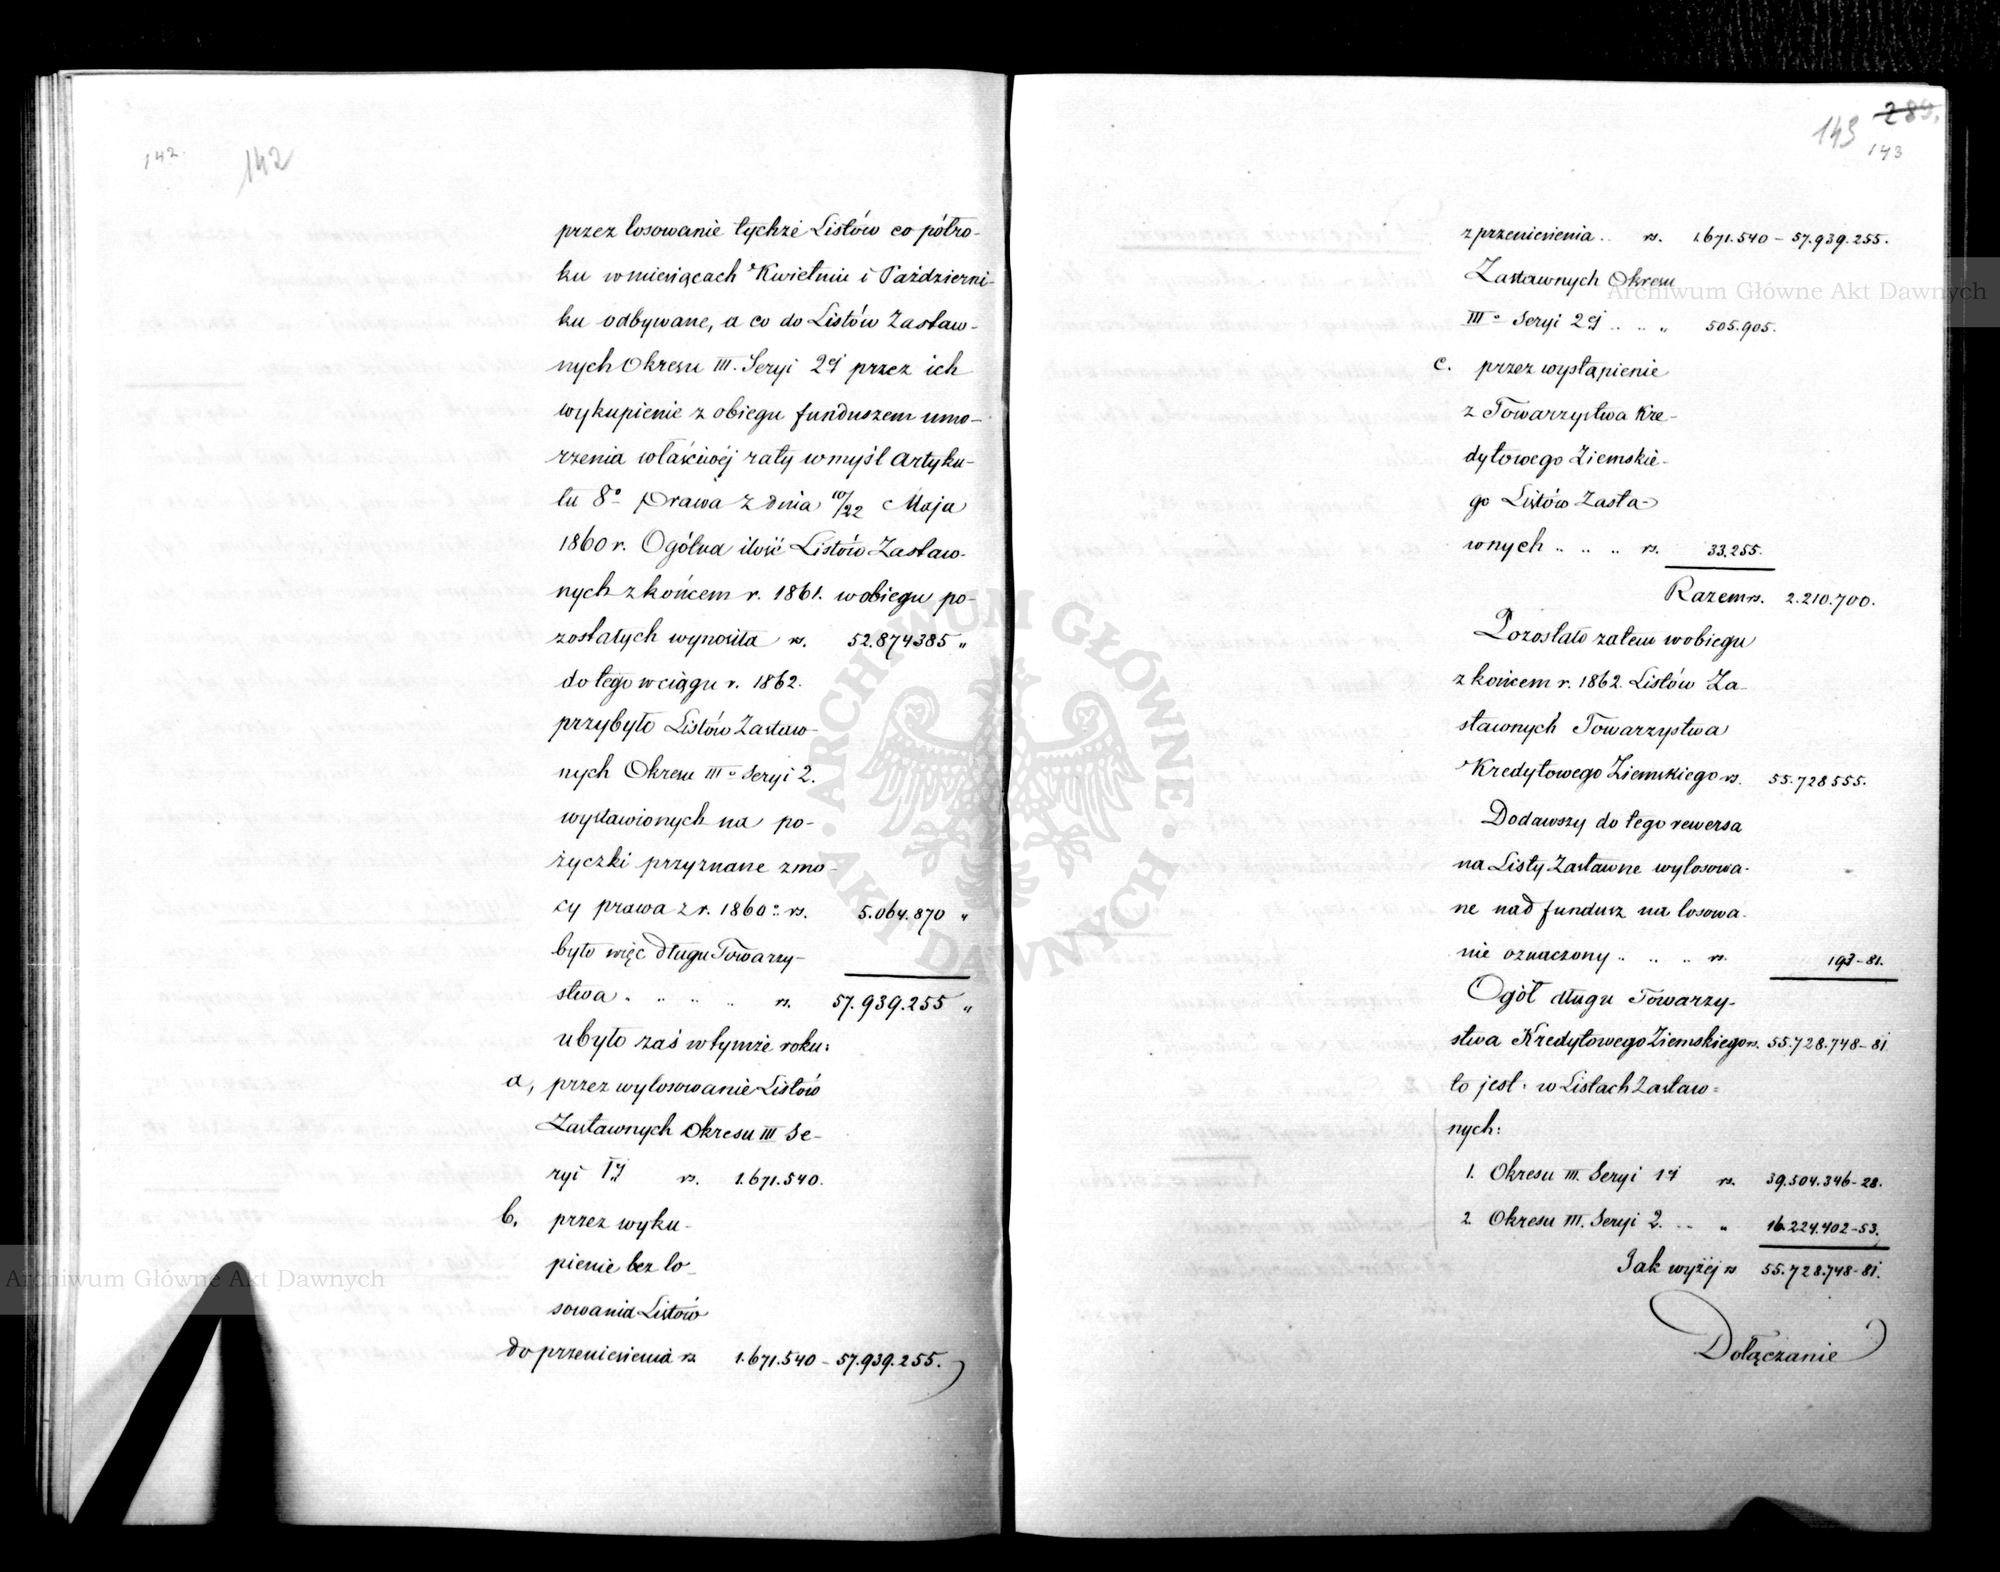 142.
142
przez losowanie tychże Listów co półro-
ku w miesiącach Kwietniu i Październi-
ku odbywane, a co do Listów Zastaw-
nych Okresu III. Seryi 2éj przez ich
wykupienie z obiegu funduszem umo-
rzenia właściwéj raty w myśl Artyku-
łu 8º Prawa z dnia 10/22 Maja
1860 r. Ogólna ilość Listów Zastaw-
nych z końcem r. 1861. w obiegu po-
zostałych wynosiła rs. 52.874385 "
do tego w ciągu r. 1862.
przybyło Listów Zastaw-
nych Okresu IIIº Seryi 2.
wystawionych na po-
życzki przyznane z mo-
cy prawa z r. 1860º rs. 5.064.870 "
było więc długu Towarzy-
stwa . .. .. .. rs. 57.939.255 "
ubyło zaś w tymże roku:
a, przez wylosowanie Listów
Zastawnych Okresu III Se-
ryi 1éj rs. 1.671.540.
b. przez wyku-
pienie bez lo-
sowania Listów
do przeniesienia rs. 1.671.540 - 57.939.255.
289.
143
143
z przeniesienia .. rs. 1.671.540 - 57.939.255.
Zastawnych Okresu
IIIº Seryi 2éj .. .. " 505.905.
c. przez wystąpienie
z Towarzystwa Kre-
dytowego Ziemskie-
go Listów Zasta-
wnych .. .. .. rs. 33.255.
Razem rs. 2.210.700.
Pozostało zatem w obiegu
z końcem r. 1862. Listów Za-
stawnych Towarzystwa
Kredytowego Ziemskiego rs. 55.728555.
Dodawszy do tego rewersa
na Listy Zastawne wylosowa-
ne nad fundusz na losowa-
nie oznaczony .. .. .. rs. 193-81.
Ogół długu Towarzy-
stwa Kredytowego Ziemskiego rs. 55.728.748-81
to jest: w Listach Zastaw-
nych:
1. Okresu III. Seryi 1éj rs. 39.504.346-28.
2. Okresu III. Seryi 2. .. " 16.224.402-53.
Jak wyżéj rs 55.728.748-81.
Dołączanie
Archiwum Główne Akt Dawnych
Archiwum Główne Akt Dawnych
ARCHIWUM GŁÓWNE · AKT DAWNYCH ·